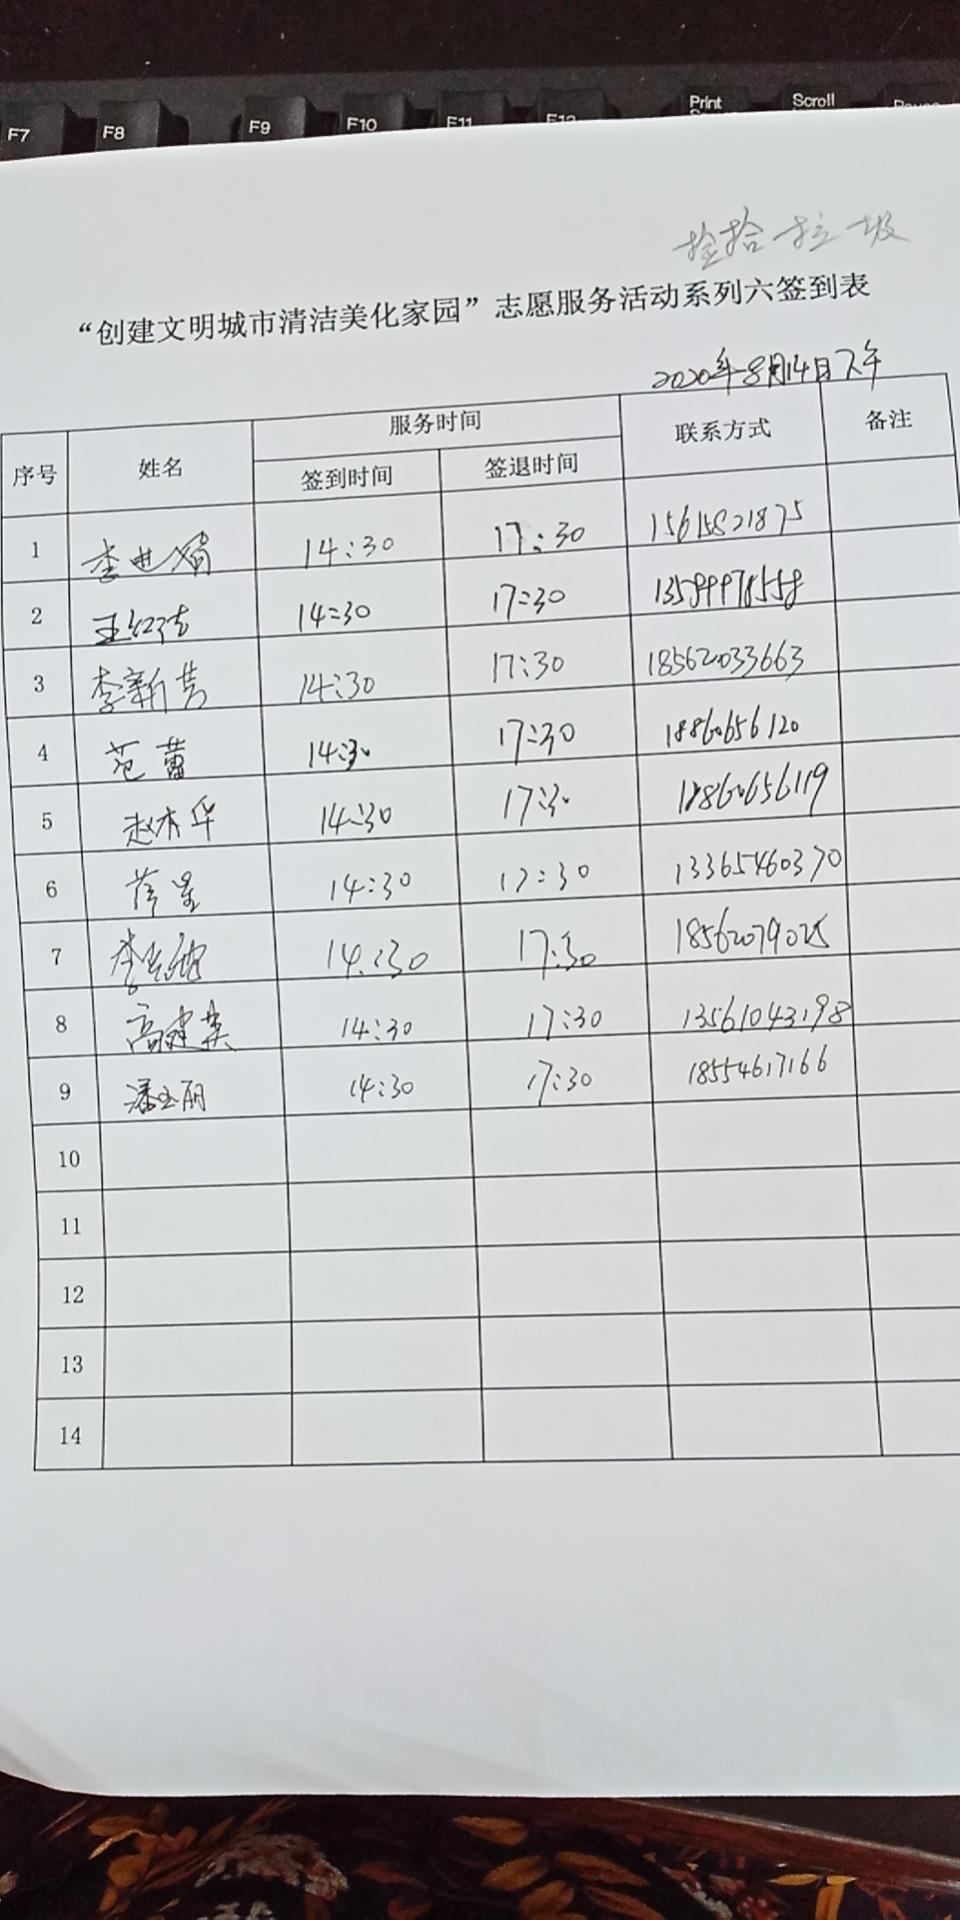 F7 F8 F9 F10 F11 F12 Print Scroll
捡拾垃圾
“创建文明城市清洁美化家园”志愿服务活动系列六签到表
2020年8月14日下午
序号 姓名 服务时间 联系方式 备注
签到时间 签退时间
1 14:30 17:30 15615821875
2 王红洁 14:30 17:30 13589978558
3 李新芳 14:30 17:30 18562033663
4 范蕾 14:30 17:30 18860656120
5 赵木华 14:30 17:30 18860656119
6 薛星 14:30 17:30 13365460370
7 14:30 17:30 18562079025
8 高建英 14:30 17:30 13561043198
9 潘玉丽 14:30 17:30 18554617166
10
11
12
13
14